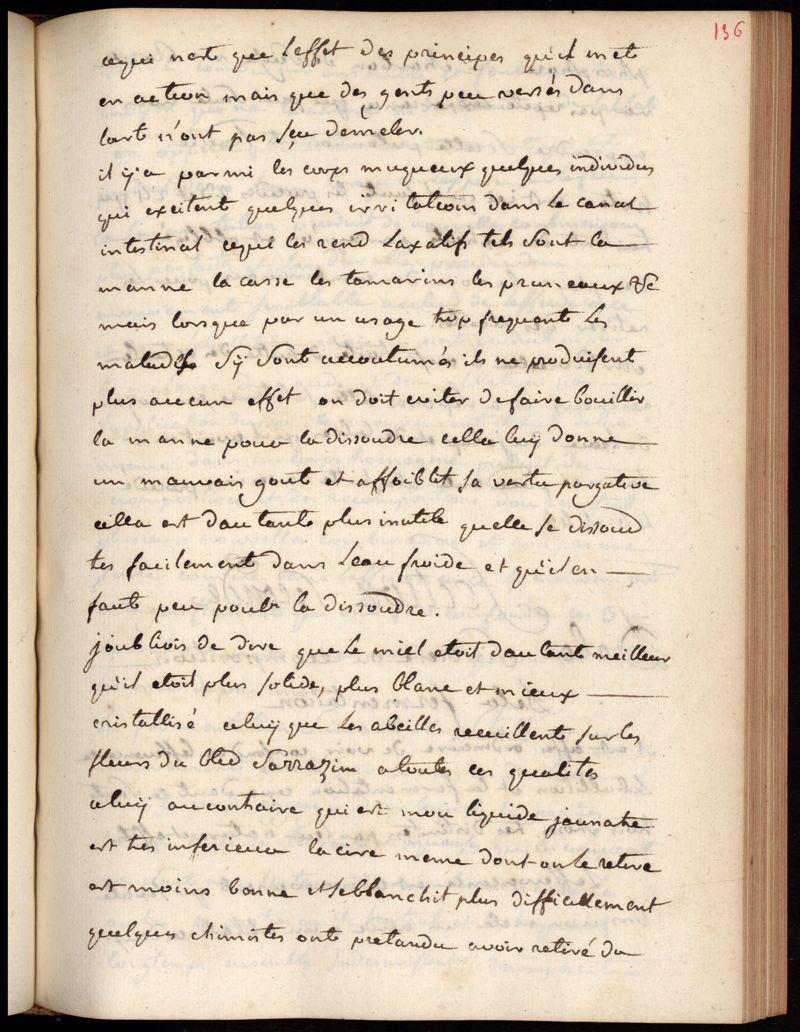 136
cequi n'est que l'effet des principes qu'il met
en action mais que des gents peu versés dans
l'art n'ont pas sçu demeler.
il y a parmi les corps muqueux quelques individus
qui excitent quelques irritations dans le canal
intestinal cequi les rend laxatifs tels sont la
manne la casse les tamarins les pruneaux &c
mais lorsque par un usage trop frequent les
malades s'ÿ sont accoutumés ils ne produisent
plus aucun effet on doit eviter defaire bouillir
la manne pour la dissoudre cella luy donne
un mauvais gout et affoiblit sa vertu purgative
cella est dautant plus inutile quelle se dissoud
tes facilement dans l'eau froide et qu'il en
faut peu pour la dissoudre.
j'oubliois de dire que le miel etoit dautant meilleur
qu'il etoit plus solide, plus blanc et mieux
cristallisé celuy que les abeilles recueillent sur les
fleurs du bled Sarrazin a toutes ces qualités
celuy aucontraire qui est mou liquide jaunatre
est tres inferieur la cire meme dont on le retire
est moins bonne et seblanchit plus difficilement
quelques chimistes ont pretandu avoir retiré du